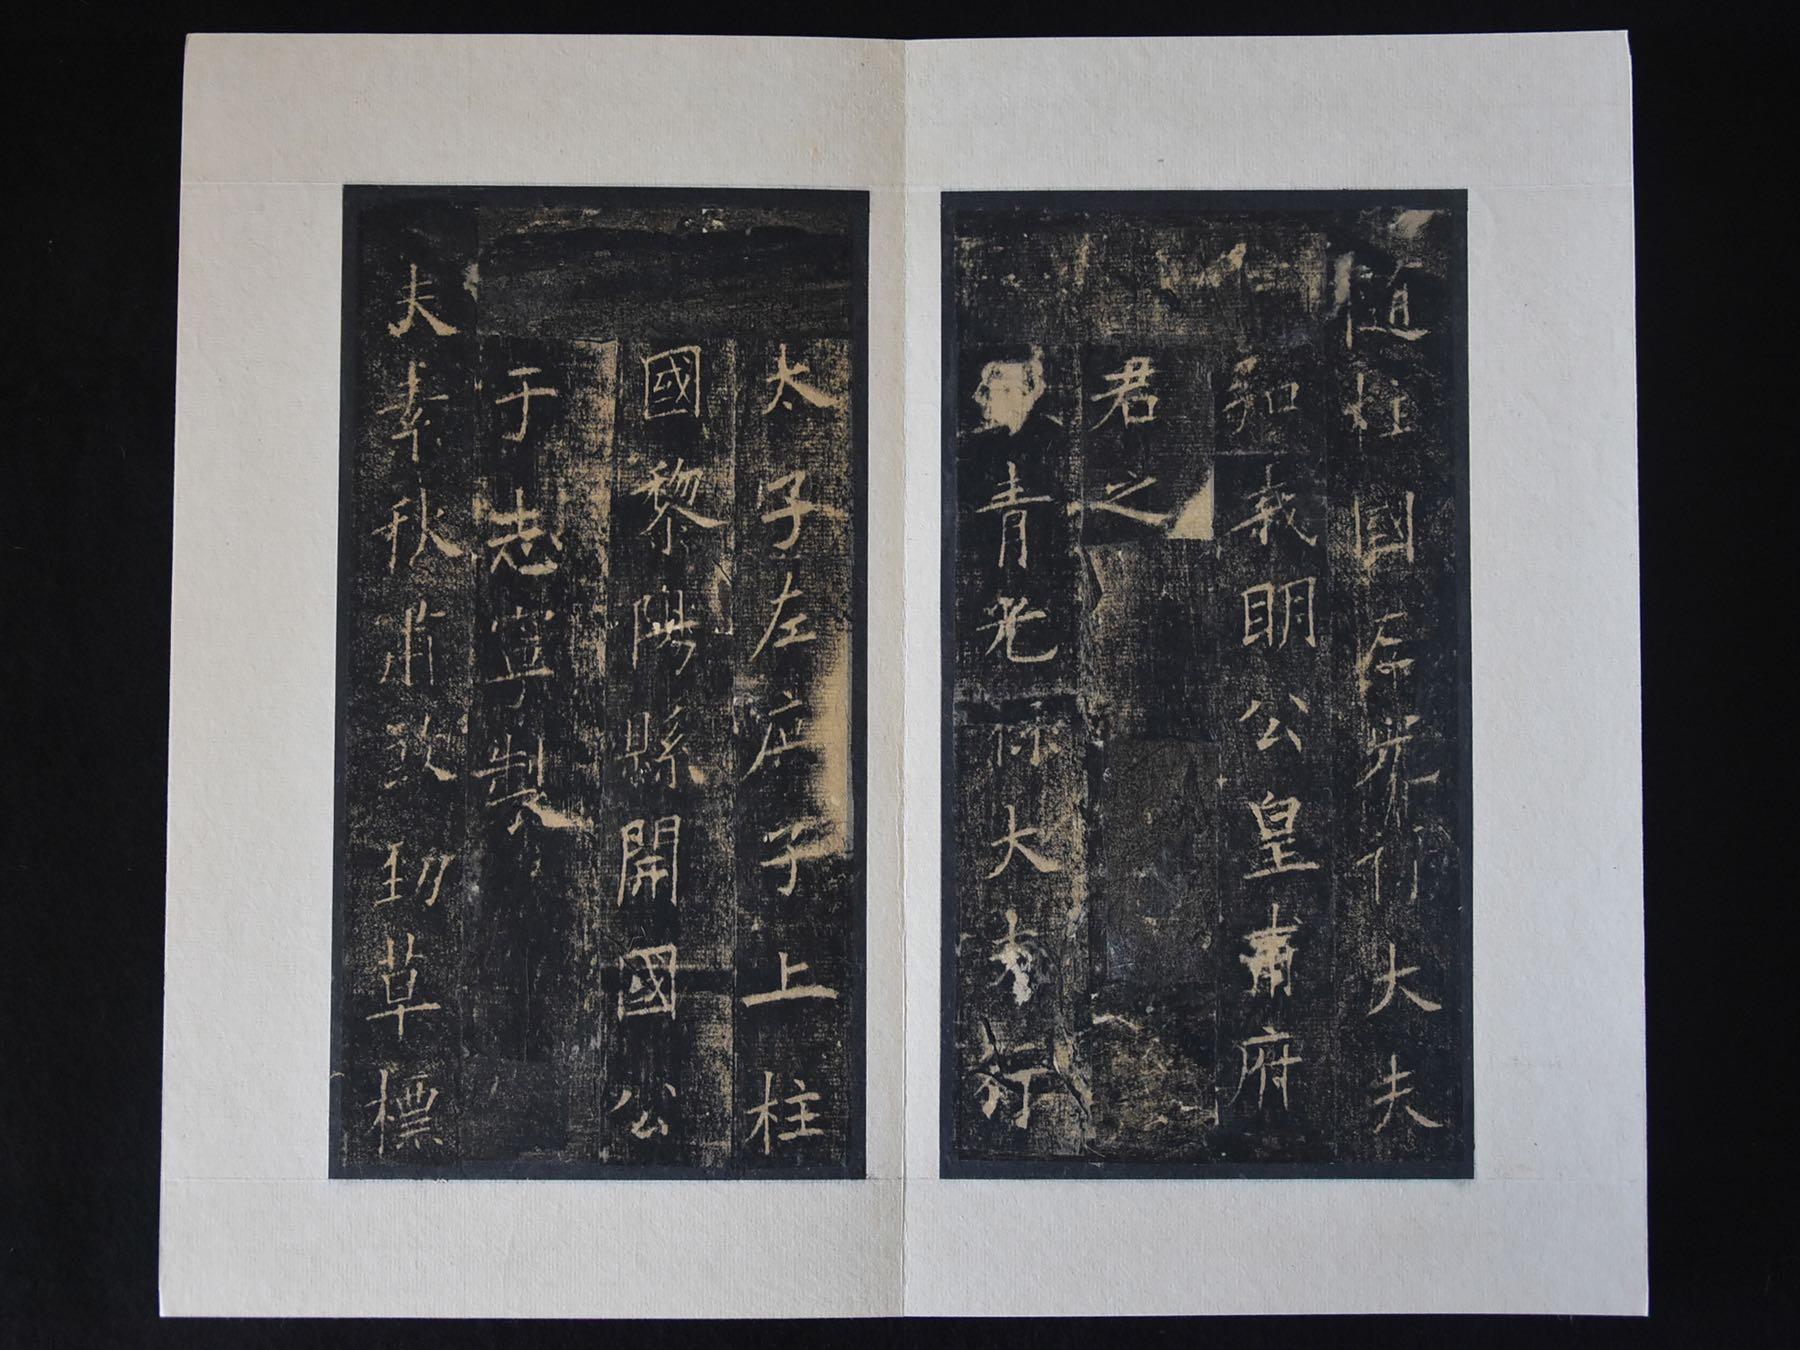 隨柱國左光祿大夫
弘義明公皇甫府
君之
青光祿大夫行
太子左庶子上柱
國黎陽縣開國公
于志寧製
夫素秋肅煞勁草標